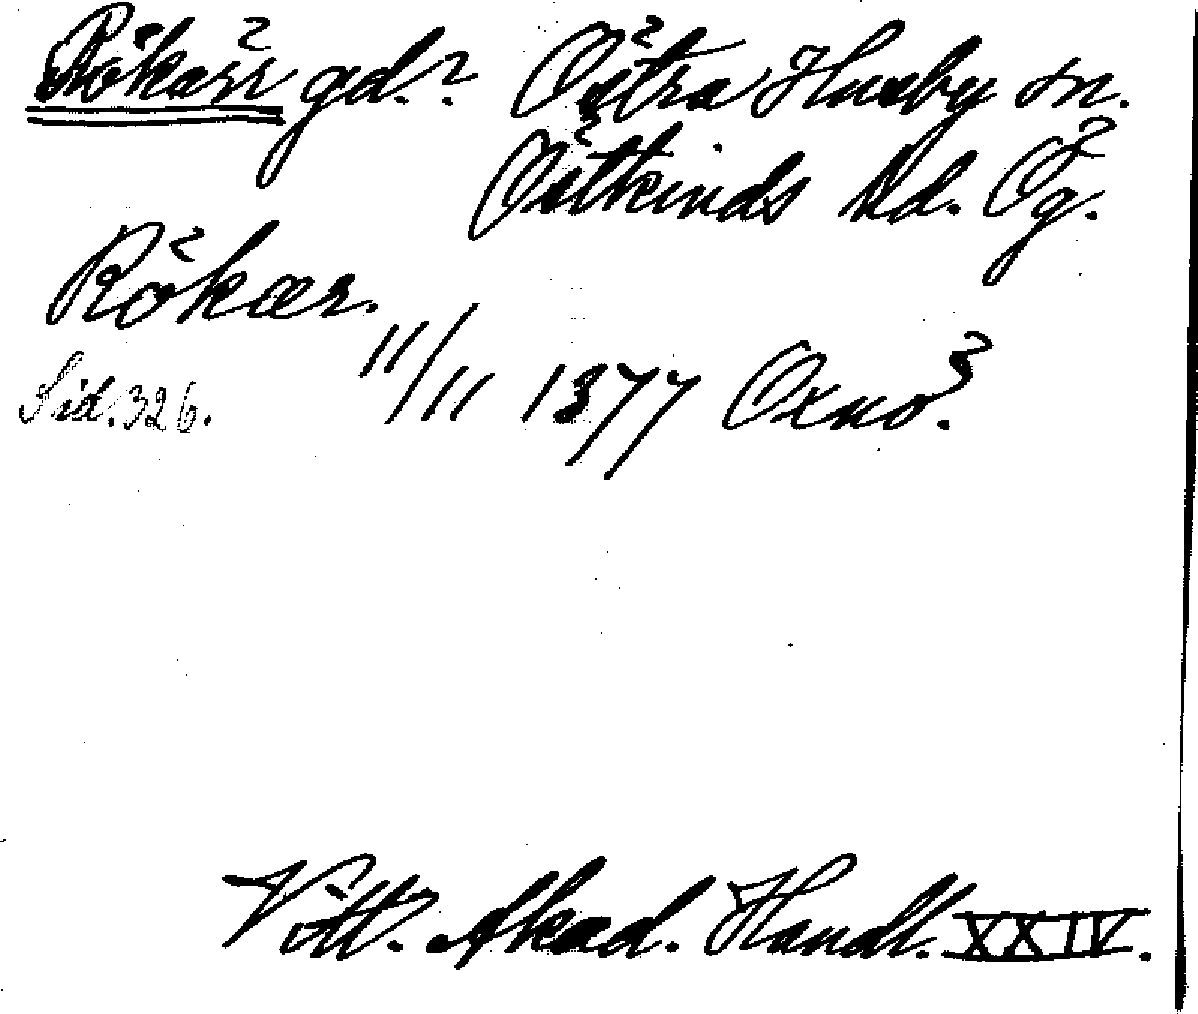 Rökärr gd.? Östra Husby sn.
Östkinds hd. Ög.
Rökær.
Sid. 326. 11/11 1377 Oxnö.
Vitt. Akad. Handl. XXIV.